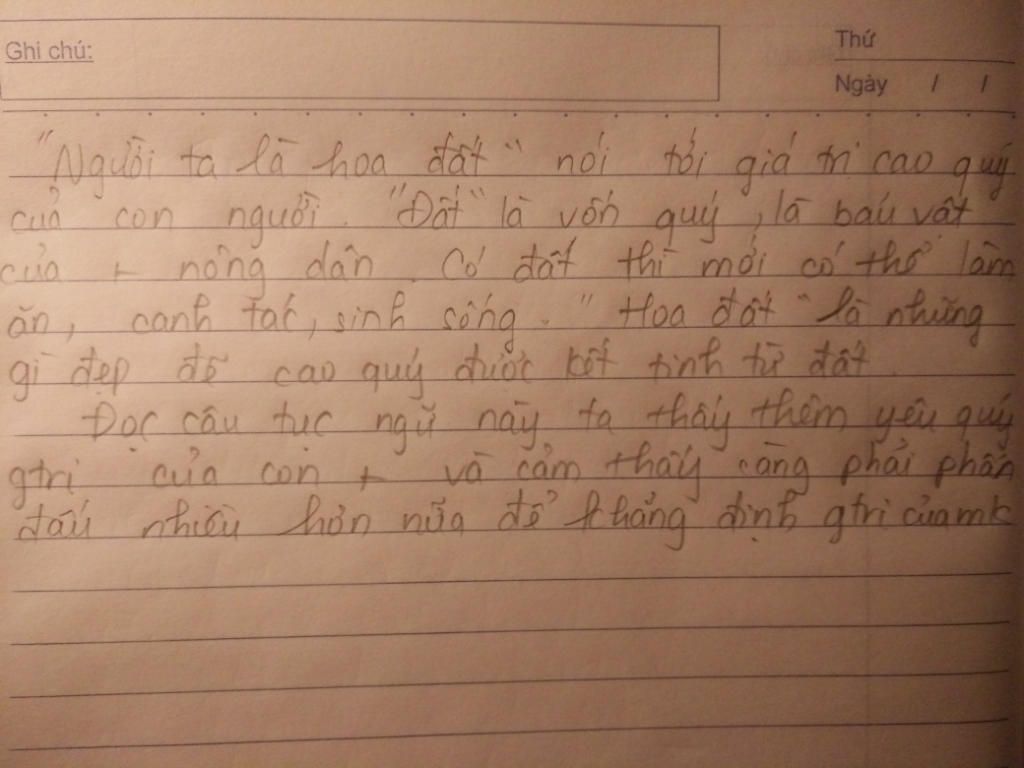 Ghi chú:
Thứ
Ngày / /
"Người ta là hoa đất" nói tới giá trị cao quý
của con người. "Đất" là vốn quý, là báu vật
của + nông dân. Có đất thì mới có thể làm
ăn, canh tác, sinh sống. "Hoa đất" là những
gì đẹp đẽ cao quý được kết tinh từ đất.
Đọc câu tục ngữ này ta thấy thêm yêu quý
gtri của con + và cảm thấy càng phải phấn
đấu nhiều hơn nữa để khẳng định gtri của mk